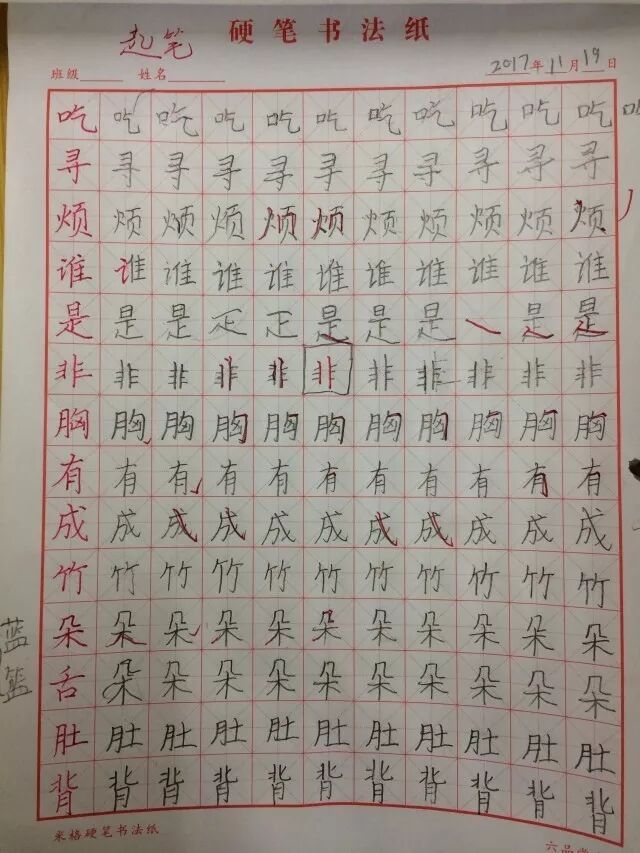 硬笔书法纸
起笔
班级 姓名 2017年11月19日
吃 吃 吃 吃 吃 吃 吃 吃 吃 吃 吃
寻 寻 寻 寻 寻 寻 寻 寻 寻 寻 寻
烦 烦 烦 烦 烦 烦 烦 烦 烦 烦 烦
谁 谁 谁 谁 谁 谁 谁 谁 谁 谁 谁
是 是 是 是 是 是 是 是
非 非 非 非 非 非 非 非 非 非 非
胸 胸 胸 胸 胸 胸 胸 胸 胸 胸 胸
有 有 有 有 有 有 有 有 有 有 有
成 成 成 成 成 成 成 成 成 成 成
竹 竹 竹 竹 竹 竹 竹 竹 竹 竹 竹
朵 朵 朵 朵 朵 朵 朵 朵 朵 朵 朵
蓝
篮
舌 朵 朵 朵 朵 朵 朵 朵 朵 朵 朵
肚 肚 肚 肚 肚 肚 肚 肚 肚 肚 肚
背 背 背 背 背 背 背 背 背 背 背
米格硬笔书法纸 六品